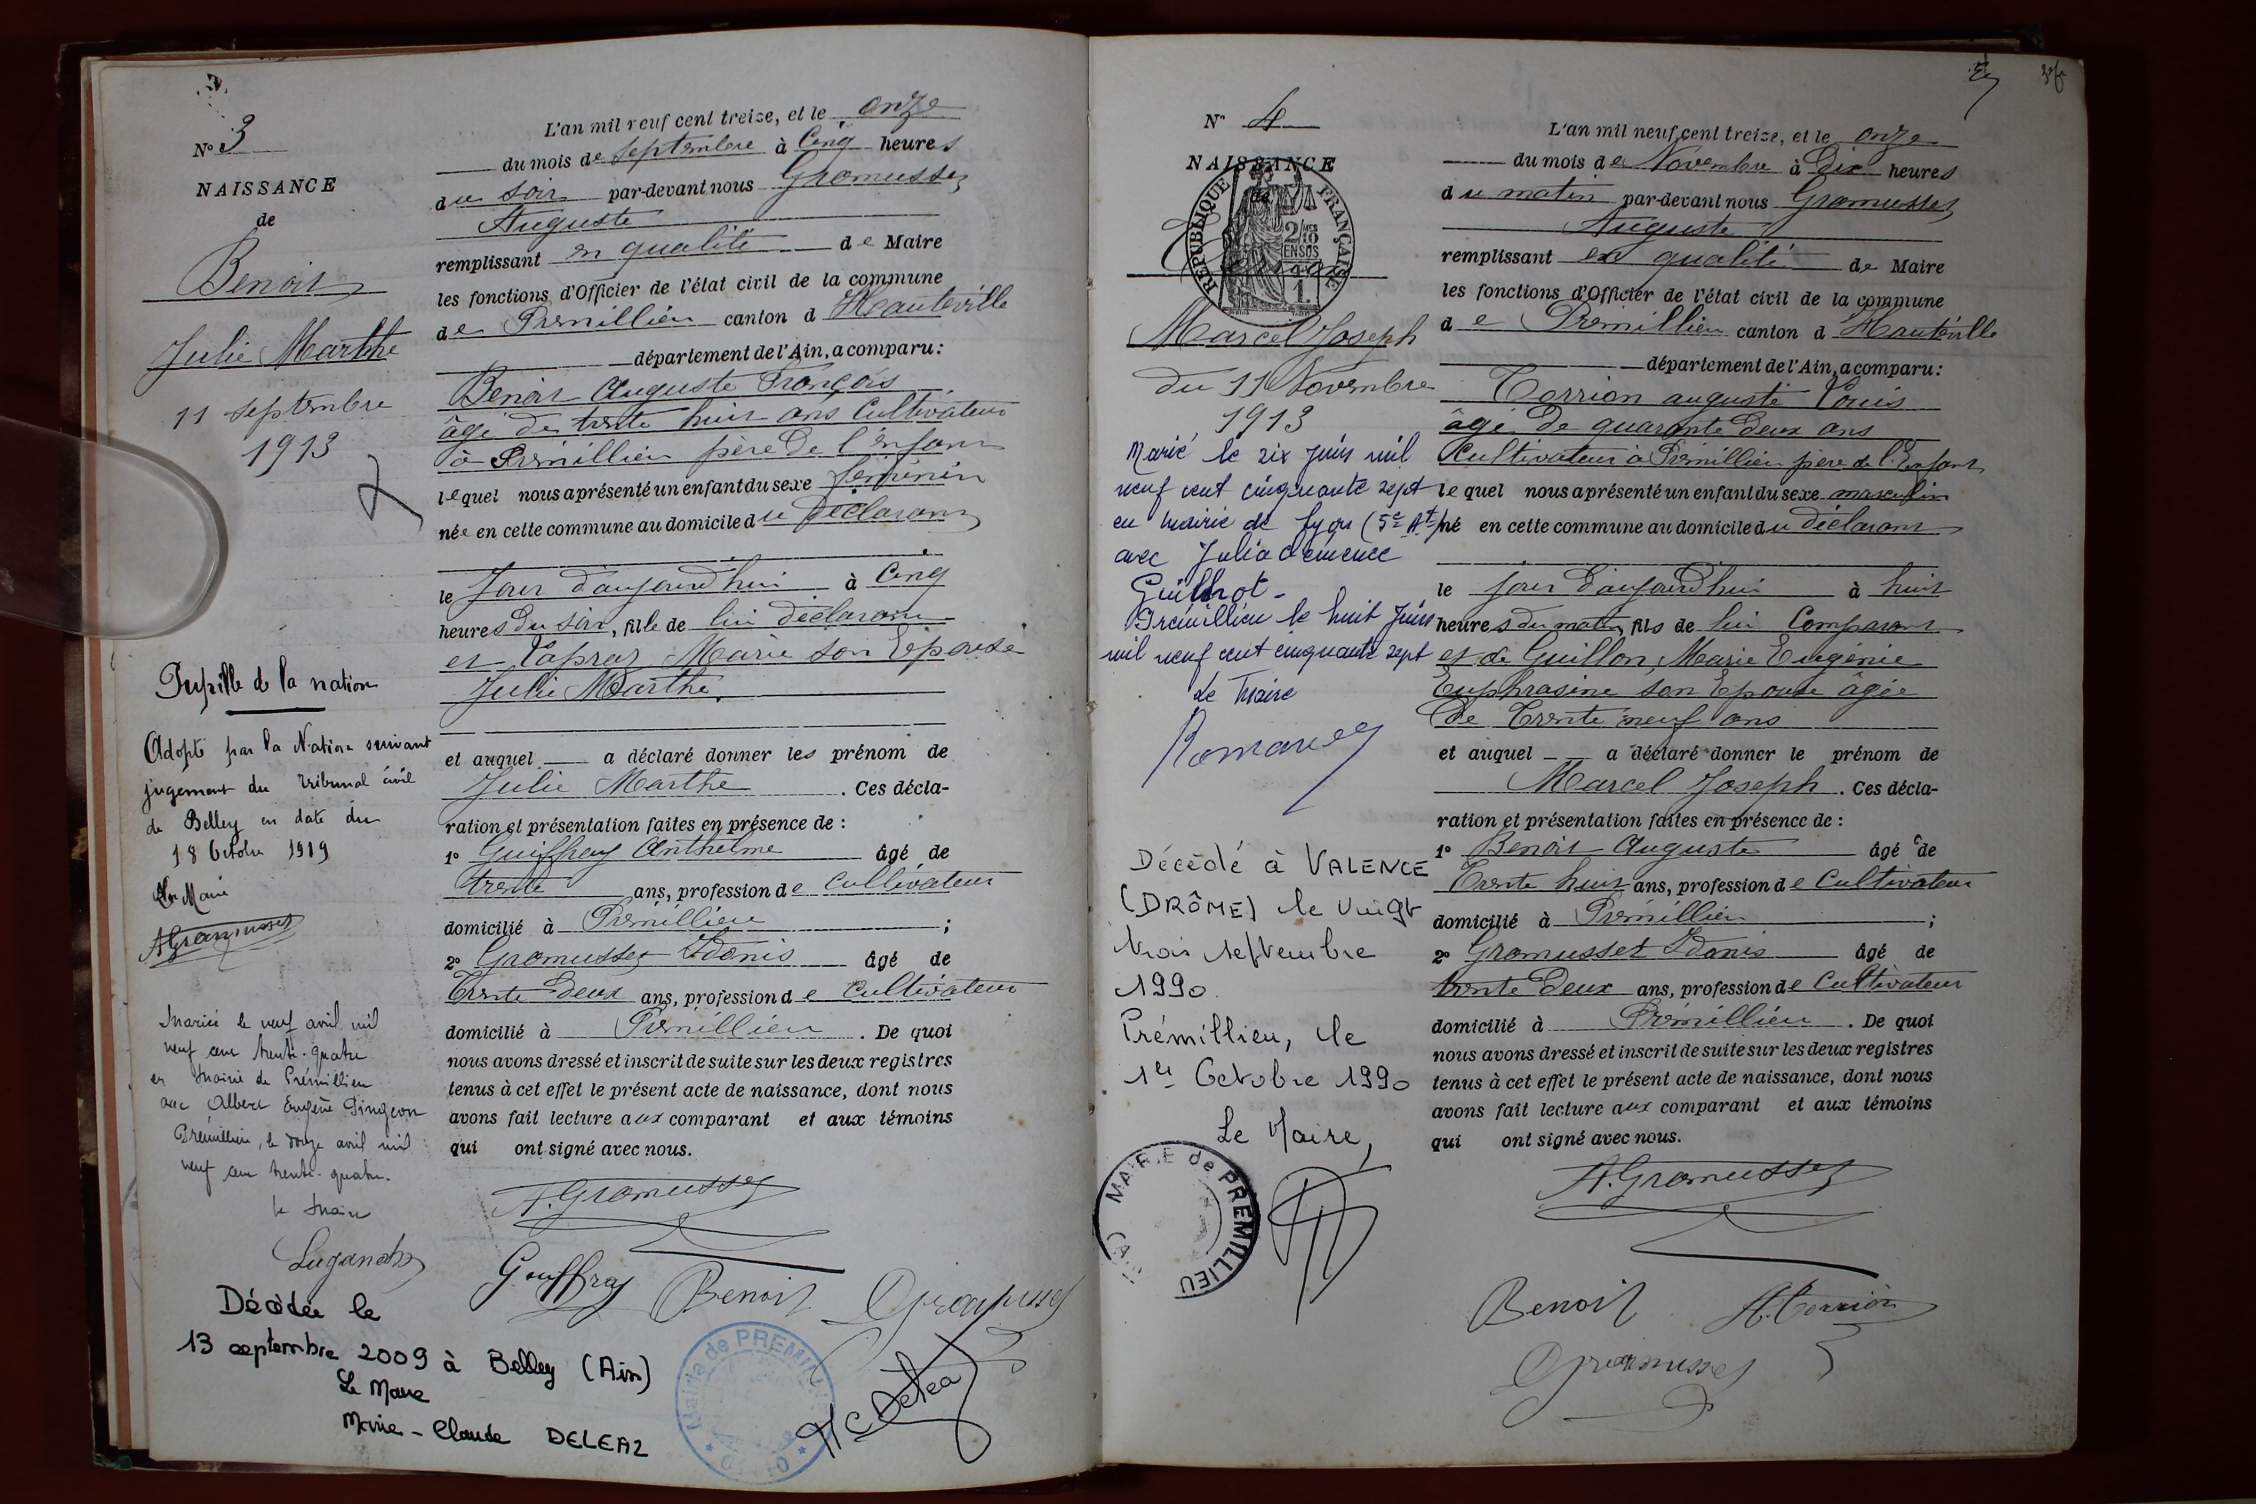 N° 3
NAISSANCE
de
Benoit
Julie Marthe
11 septembre
1913
Pupille de la nation
Adopté par la Nation suivant
jugement du tribunal civil
de Belley en date du
18 Octobre 1919
Le Maire
AGramusset
Mariée le neuf avril mil
neuf cent trente-quatre
en mairie de Prémillieu
avec Albert Eugène Pingeon
Prémillieu, le douze avril mil
neuf cent trente-quatre.
le Maire
Décédée le
13 septembre 2009 à Belley (Ain)
Le Maire
Marie-Claude DELEAZ
L'an mil neuf cent treize, et le onze
du mois de septembre à Cinq heures
du soir par-devant nous Gramusset
Auguste
remplissant en qualité de Maire
les fonctions d'Officier de l'état civil de la commune
de Prémillieu canton d Hauteville
département de l'Ain, a comparu:
Benoit Auguste François
âgé de trente huit ans Cultivateur
à Prémillieu père de l'enfant
lequel nous a présenté un enfant du sexe féminin
née en cette commune au domicile du déclarant
le Jour d'aujourd'hui à Cinq
heures du soir, fille de lui déclarant
et Marie son Epouse
Julie Marthe.
et auquel a déclaré donner les prénom de
Julie Marthe. Ces décla-
ration et présentation faites en présence de :
1° Guiffray Anthelme âgé de
trente ans, profession de Cultivateur
domicilié à Prémillieu ;
2° Gramusset Adonis âgé de
Trente Deux ans, profession de Cultivateur
domicilié à Prémillieu. De quoi
nous avons dressé et inscrit de suite sur les deux registres
tenus à cet effet le présent acte de naissance, dont nous
avons fait lecture aux comparant et aux témoins
qui ont signé avec nous.
A. Gramusset
Gouffray Benoit Gramusset
Mairie de PREMILLIEU
MCDeleaz
N° 4
NAISSANCE
de
RÉPUBLIQUE FRANÇAISE
2/10 EN SUS
Marcel Joseph
du 11 Novembre
1913
Marié le six juin mil
neuf cent cinquante sept
en mairie de Lyon (5e At)
avec Julia Clémence
Guillot-
Prémillieu le huit juin
mil neuf cent cinquante sept
Le Maire
Décédé à VALENCE
(DRÔME) le vingt
trois septembre
1990.
Prémillieu, le
1er Octobre 1990
Le Maire,
MAIRIE de PREMILLIEU (AIN)
L'an mil neuf cent treize, et le onze
du mois de Novembre à Dix heures
du matin par-devant nous Gramusset
Auguste
remplissant en qualité de Maire
les fonctions d'Officier de l'état civil de la commune
de Prémillieu canton d Hauteville
département de l'Ain, a comparu:
Terrion auguste Louis
âgé de quarante Deux ans
Cultivateur à Prémillieu père de l'Enfant
lequel nous a présenté un enfant du sexe masculin
né en cette commune au domicile du déclarant
le jour d'aujourd'hui à huit
heures du matin, fils de lui Comparant
et de Guillon Marie Eugénie
Euphrasine son Epouse âgée
de Trente neuf ans
et auquel a déclaré donner le prénom de
Marcel Joseph. Ces décla-
ration et présentation faites en présence de :
1° Benoit Auguste âgé de
Trente huit ans, profession de Cultivateur
domicilié à Prémillieu ;
2° Gramusset Adonis âgé de
trente Deux ans, profession de Cultivateur
domicilié à Prémillieu. De quoi
nous avons dressé et inscrit de suite sur les deux registres
tenus à cet effet le présent acte de naissance, dont nous
avons fait lecture aux comparant et aux témoins
qui ont signé avec nous.
A. Gramusset
Benoit A. Terrion
Gramusset